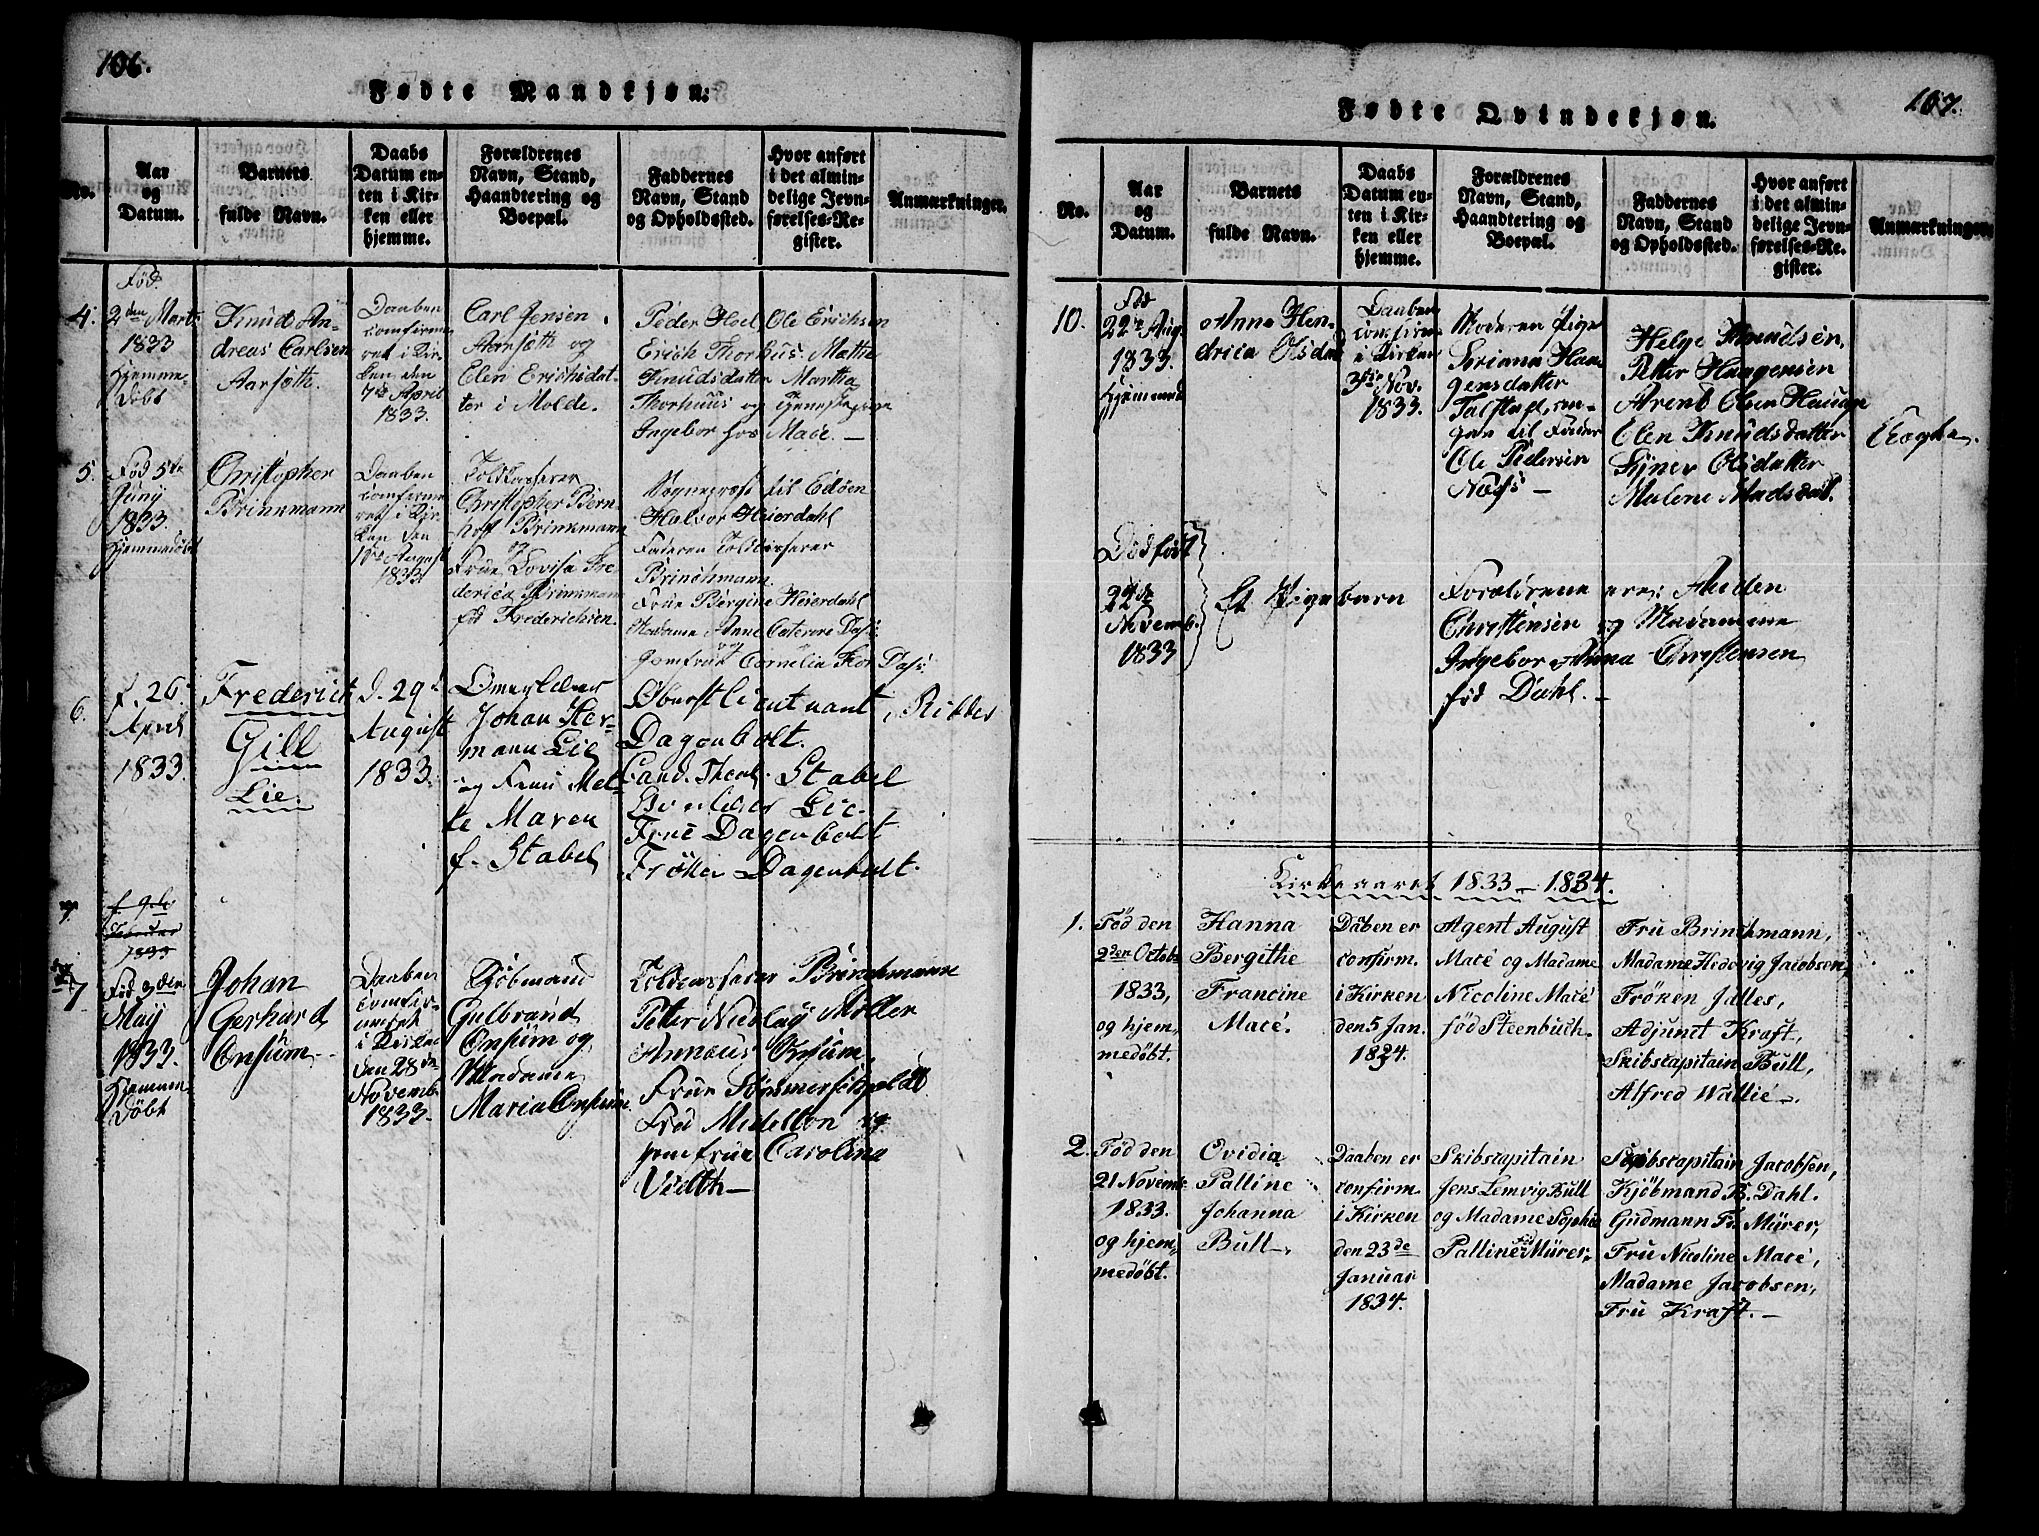 106.
Fødte Mandkjøn:
No.
Aar
og
Datum.
Barnets
fulde Navn.
Daabs
Datum en-
ten i Kir-
ken eller
hjemme.
Forældrenes
Navn, Stand,
Haandtering og
Boepæl.
Faddernes
Navn, Stand
og Opholdssted.
Hvor anført
i det almin-
delige Jevn-
førelses-Re-
gister.
Anmærkninger.
4.
Fød.
2den Marts
1833
Hjemme-
døbt
Knud An-
dreas Carlsen
Aarsæth.
Daaben
comfirme-
ret i Kir-
ken den
7de April
1833.
Carl Jensen
Aarsæth og
Elen Erichsdat-
ter i Molde.
Peder Hoel Ole Erichsen
Erich Thorhus Mætte
Knudsdatter Martha
Thorhuus og
Ingebor hos Macé. —
5.
Fød 5te
Junij
1833.
Hjemmedøbt
Christopher
Brinkmann
Daaben
comfirme-
ret i Kir-
ken den
August
1833.
Toldkasserer
Christopher Bern-
hoft Brinkmann
og
Frue Lovisa Fre-
derica Brinkmann
fød Frederichsen.
Sognepræst til Edøen
Halvor Heierdahl
Faderen Toldkasserer
Brinchmann
Frue Bergine Heierdahl
Madame Anne Catrine Dass
og
Jomfrue Cornelia Dass.
6.
f. 26
April
1833.
Frederich
Gill
Lie.
d. 29
August
1833.
Johan Her-
mann Lie
og Frue Met-
te Maren
f. Stabel
Oberstlieutnant
Dagenbolt.
Cand. Theol. Stabel
Lie.
Frue Dagenbolt
Frøken Dagenbolt.
7
f. 9de
Februar
1833
7
Fød 3den
Maij
1833.
Hjemme-
døbt
Johan
Gerhard
Onsum.
Daaben
comfir-
meret
i Kirken
den 28de
Novemb.
1833.
Kjöbmand
Gulbrand
Onsum og
Madame
Maria Onsum
Toldkasserer Brinchmann
Petter Nicolay Møller
Annæus Onsum
Frue
Frød Midelton og
Jomfrue Carolina
Vedth—
107.
Fødte Qvindekjøn.
No.
Aar
og
Datum.
Barnets
fulde Navn.
Daabs
Datum en-
ten i Kir-
ken eller
hjemme.
Forældrenes
Navn, Stand,
Haandtering og
Boepæl.
Faddernes
Navn, Stand
og Opholdssted.
Hvor anført
i det almin-
delige Jevn-
førelses-Re-
gister.
Anmærkninger.
10.
Fød
22de Aug.
1833.
Hjemmed
Anna Hen-
drica Olsdat
Daaben
comfirm
i Kirken
3die Nov.
1833.
Moderen Pige
Haa-
gensdatter
til Fader
Ole Pedersen
Næss —
Helge Knudsen,
Petter Haagensen
Arent Olsen Hauage
Elen Knudsdatter
Synev Olsdatter
Malene Madsdat.
Dødfødt
22de
Novemb.
1833
Et Pigebarn
Forældrene ere: Auden
Christensen og Madamme
Ingebor Anna Christensen
fød Dahl. —
Kirkeaaret 1833 – 1834.
1.
Fød den
2den Octob.
1833,
og hjem,
medøbt.
Hanna
Bergithe
Francine
Macé.
Daben er
confirm.
i Kirken
den 5 Jan.
1834.
Agent August
Macé og Madame
Nicoline Macé
fød Steenbuch.
Fru Brinchmann,
Madame Hedevig Jacobsen,
Fröken Jalles,
Adjunct Kraft,
Skibscapitain Bull,
Alfred Wallie.
2.
Fød den
21 Novemb.
1833.
og hjem,
medøbt.
Ovidia
Palline
Johanna
Bull.
Daaben er
confirm.
i Kirken
den 23de
Januar
1834.
Skibscapitain
Jens Lemvig Bull
og Madame Sophie
Palline fød Mürer.
Skibscapitain Jacobsen,
Kjöbmand B. Dahl.
Gudmann Fr. Mürer,
Fru Nicoline Macé,
Madame Jacobsen,
Fru Kraft. —